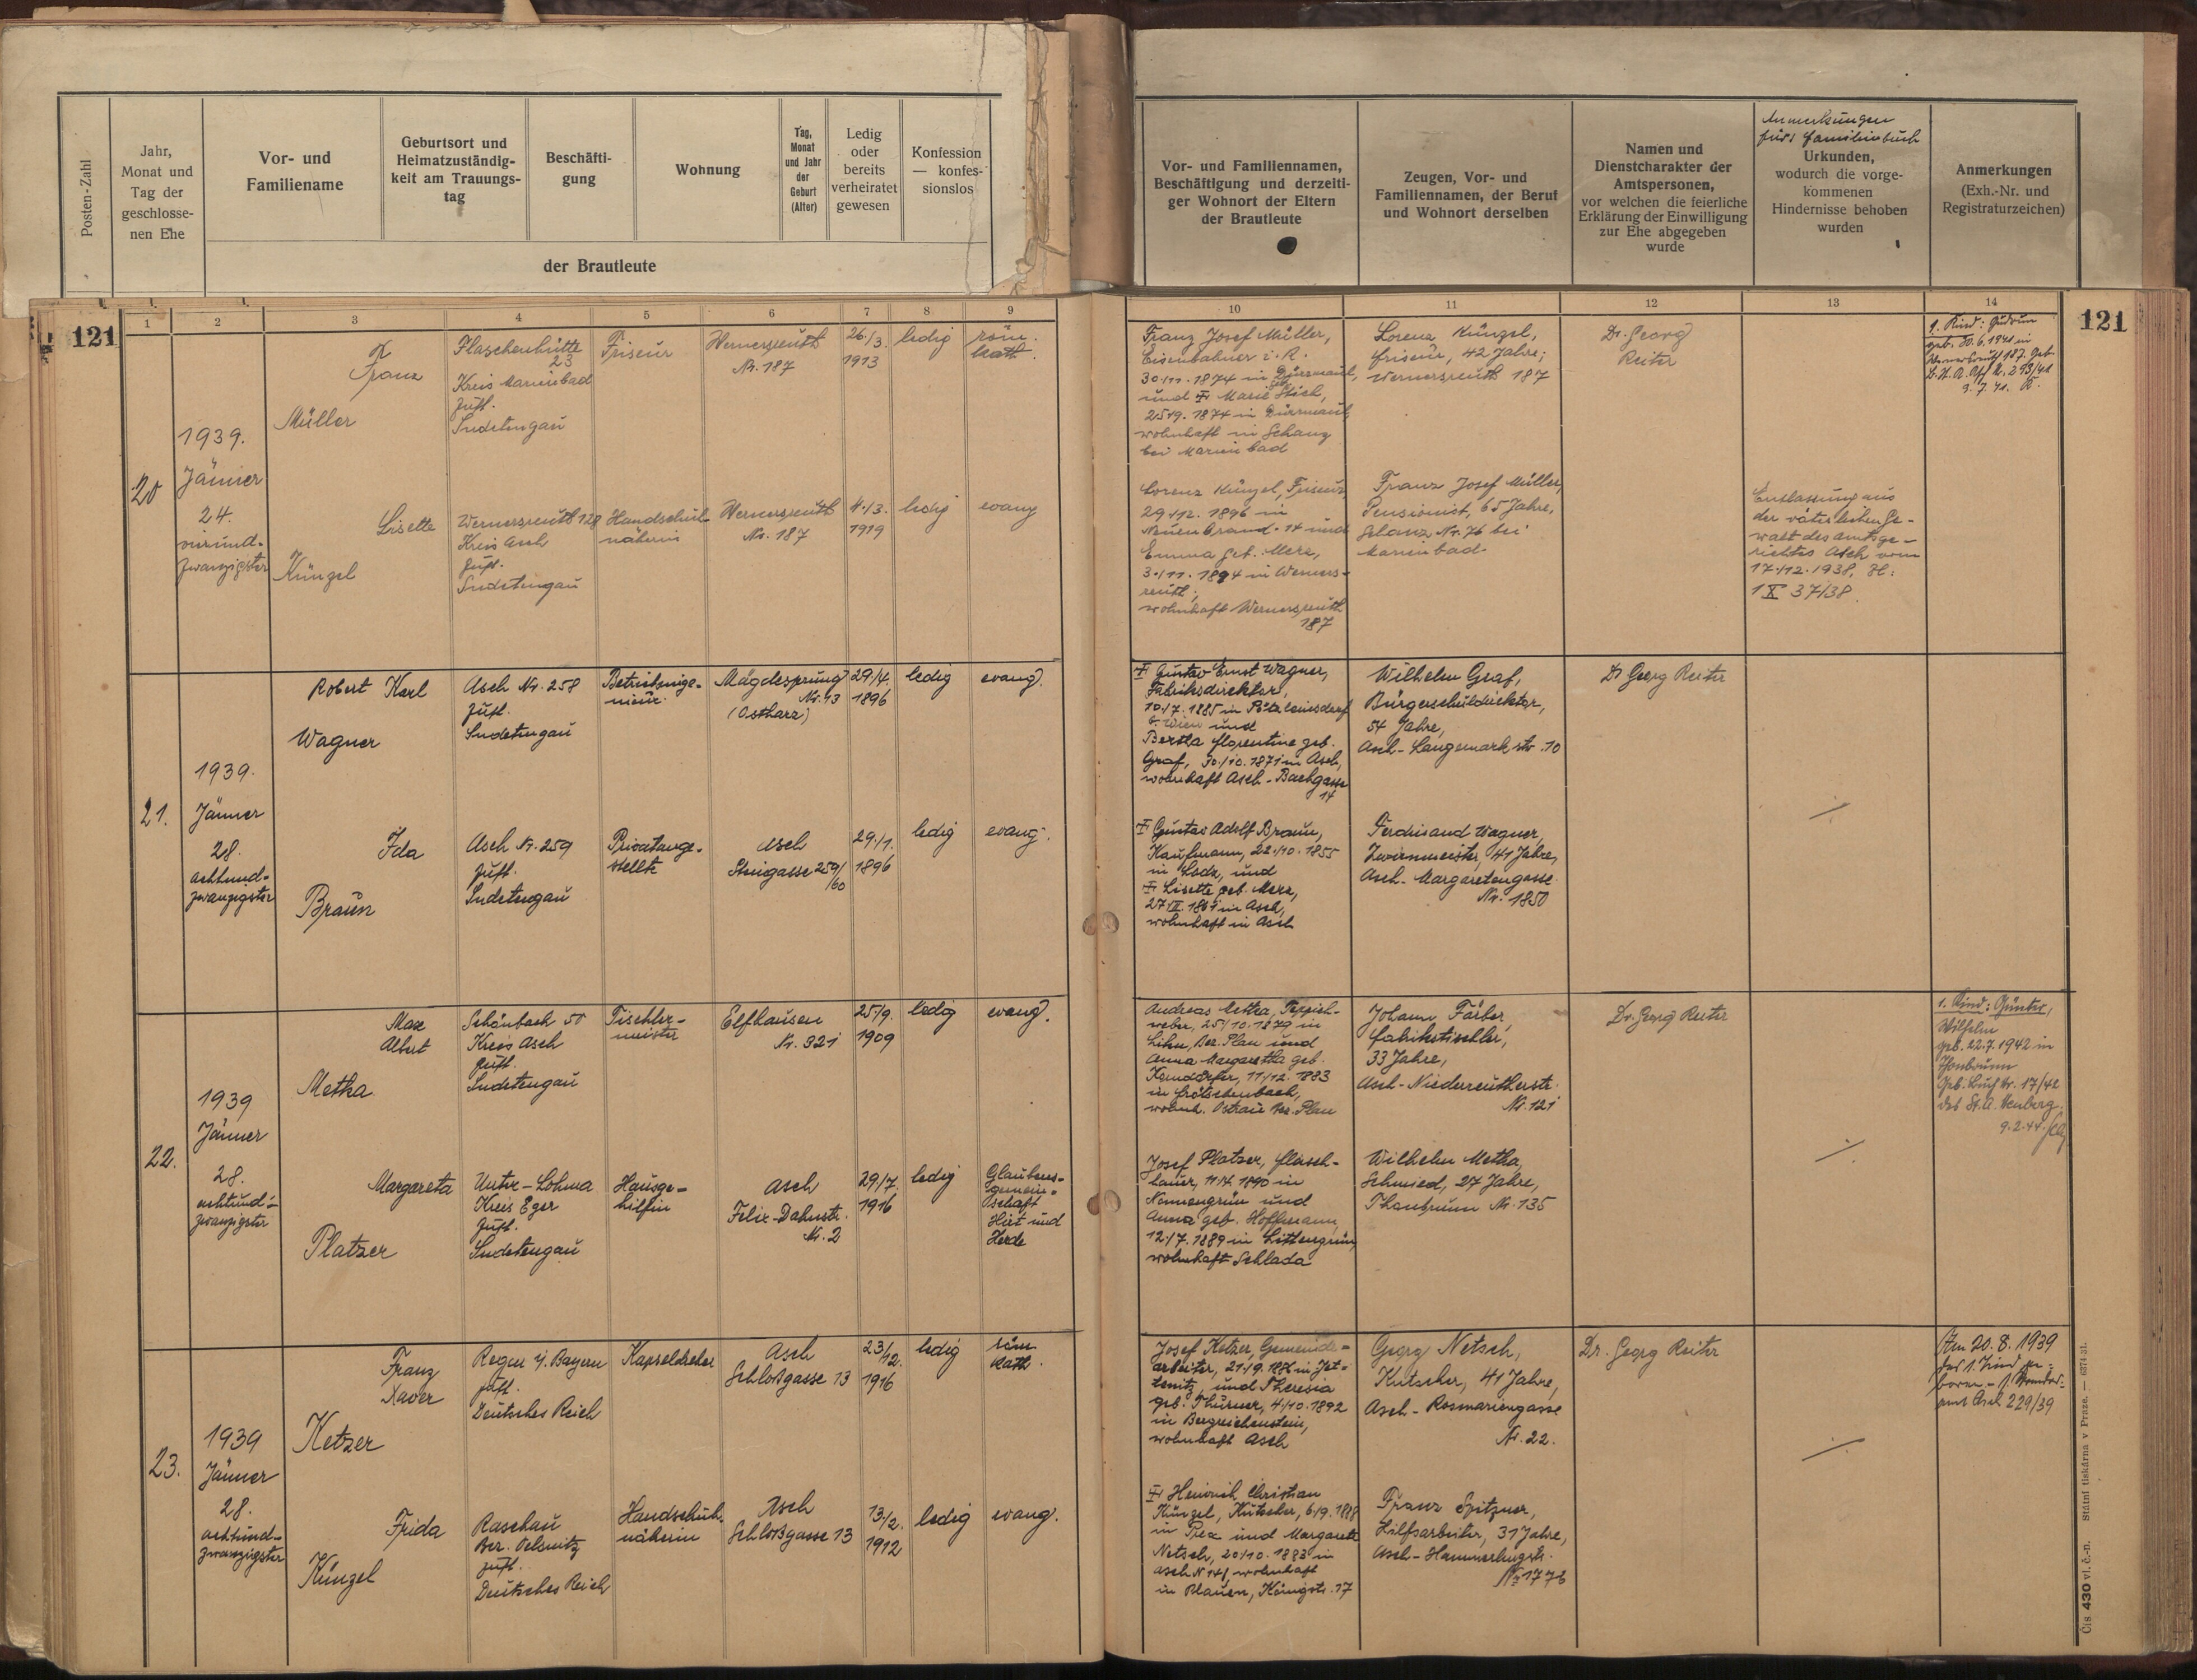 Posten-Zahl
Jahr,
Monat und
Tag der
geschlosse-
nen Ehe
Vor- und
Familiename
Geburtsort und
Heimatzuständig-
keit am Trauungs-
tag
Beschäfti-
gung
Wohnung
Tag,
Monat
und Jahr
der
Geburt
(Alter)
Ledig
oder
bereits
verheiratet
gewesen
Konfession
— konfes-
sionslos
der Brautleute
Vor- und Familiennamen,
Beschäftigung und derzeiti-
ger Wohnort der Eltern
der Brautleute
Zeugen, Vor- und
Familiennamen, der Beruf
und Wohnort derselben
Namen und
Dienstcharakter der
Amtspersonen,
vor welchen die feierliche
Erklärung der Einwilligung
zur Ehe abgegeben
wurde
Anmerkungen
fürs Familienbuch
Urkunden,
wodurch die vorge-
kommenen
Hindernisse behoben
wurden
Anmerkungen
(Exh.-Nr. und
Registraturzeichen)
121
1 2 3 4 5 6 7 8 9
10 11 12 13 14
121
20
1939.
Jänner
24.
vierund-
zwanzigster
Franz
Müller
Flaschenhütte
23
Kreis Marienbad
zust.
Sudetengau
Friseur
Wernersreuth
Nr. 187
26./3.
1913
ledig
röm.
kath.
Franz Josef Müller,
Eisenbahner i. R.
30/11. 1874 in Dürrmaul,
und Marie
25/9. 1874 in Dürrmaul,
wohnhaft in Schanz
bei Marienbad
Lorenz Künzel,
Friseur, 42 Jahre;
Wernersreuth 187
Dr. Georg
Reiter
1. Kind: Gudrun
geb. 30.6.1941 in
Wernersreuth 187. Geb.
9.7.41.
Lisette
Künzel
Wernersreuth 128
Kreis Asch
zust.
Sudetengau
Handschuh-
näherin
Wernersreuth
Nr. 187
4./3.
1919
ledig
evang
Lorenz Künzel, Friseur,
29/12. 1896 in
Neuenbrand 14 und
Emma geb. Merz,
3./11. 1894 in Werners-
reuth;
wohnhaft Wernersreuth
187
Franz Josef Müller,
Pensionist, 65 Jahre,
Schanz Nr. 76 bei
Marienbad.
Entlassung aus
der väterlichen Ge-
walt des Amtsge-
richtes Asch vom
17./12. 1938, Zl:
1 X 37/38.
21.
1939.
Jänner
28.
achtund-
zwanzigster
Robert Karl
Wagner
Asch Nr. 258
zust.
Sudetengau
Betriebsinge-
nieur.
Mägdesprung
Nr. 43
(Ostharz)
29./4.
1896
ledig
evang.
Gustav Ernst Wagner,
Fabriksdirektor,
10./7. 1885 in Pötzleinsdorf
b. Wien und
Bertha Florentine geb.
Graf, 30./10. 1871 in Asch,
wohnhaft Asch - Bachgasse
14
Wilhelm Graf,
Bürgerschuldirektor,
54 Jahre,
Asch - Langemarkstr. 10
Dr Georg Reiter
Ida
Braun
Asch Nr. 259
zust.
Sudetengau
Privatange-
stellte
Asch
Steingasse 259/
60
29./1.
1896
ledig
evang.
Gustav Adolf Braun,
Kaufmann, 22./10. 1855
in Lodz, und
Lisette geb. Merz,
in Asch,
wohnhaft in Asch
Ferdinand Wagner,
Zwirnmeister, 41 Jahre,
Asch - Margaretengasse
Nr. 1850
22.
1939
Jänner
28.
achtund-
zwanzigster
Max
Albert
Metka
Schönbach 50
Kreis Asch
zust.
Sudetengau
Tischler-
meister
Elfhausen
Nr. 321
25./9.
1909
ledig
evang.
Andreas Metka, Teppich-
weber, 25/10. 1879 in
Bez. Plan und
Anna Margaretha geb.
11/12. 1883
in
wohnh. Bez. Plan
Johann Färber,
Fabrikstischler,
33 Jahre,
Asch - Niederreutherstr.
Nr. 121
Dr. Georg Reiter
1. Kind: Günter,
Wilhelm
geb. 22.7.1942 in
Thonbrunn
Geb. Buch Nr. 17/42
des St.A. Neuberg.
9.2.44.
Margareta
Platzer
Unter-Lohma
Kreis Eger
zust.
Sudetengau
Hausge-
hilfin
Asch
Felix-Dahnstr.
Nr. 2
29./7.
1916
ledig
Glaubens-
gemein-
schaft
Hirt und
Herde
Josef Platzer, Fleisch-
hauer, 1890 in
Nonnengrün und
Anna geb. Hoffmann,
12./7. 1889 in Littengrün,
wohnhaft Schlada
Wilhelm Metka,
Schmied, 27 Jahre,
Thonbrunn Nr. 135
23.
1939
Jänner
28.
achtund-
zwanzigster
Franz
Xaver
Ketzer
Regen i/. Bayern
zust.
Deutsches Reich
Kapseldreher
Asch
Schloßgasse 13
23/12.
1916
ledig
röm.
kath.
Josef Ketzer, Gemeinde-
arbeiter, 21./9. 1886 in
und Theresia
geb. Thürner, 4./10. 1892
in Bergreichenstein,
wohnhaft Asch
Georg Netsch,
Kutscher, 41 Jahre,
Asch - Rosmariengasse
Nr. 22.
Dr. Georg Reiter
Am 20.8.1939
das 1. Kind ge-
boren -
amt Asch 229/39
Frida
Künzel
Raschau
Bez. Oelsnitz
zust.
Deutsches Reich
Handschuh-
näherin
Asch
Schloßgasse 13
13/2.
1912
ledig
evang.
Heinrich Christian
Künzel, Kutscher, 6./9. 1888
in Rex und Margareta
Netsch, 20/10. 1883 in
Asch N 141, wohnhaft
in Plauen, Königstr. 17
Franz Spitzner,
Hilfsarbeiter, 31 Jahre,
Asch - Hammerlingstr.
Nr 1776
Čís 430 vl. č.-n. Státní tiskárna v Praze. — 6374-31.